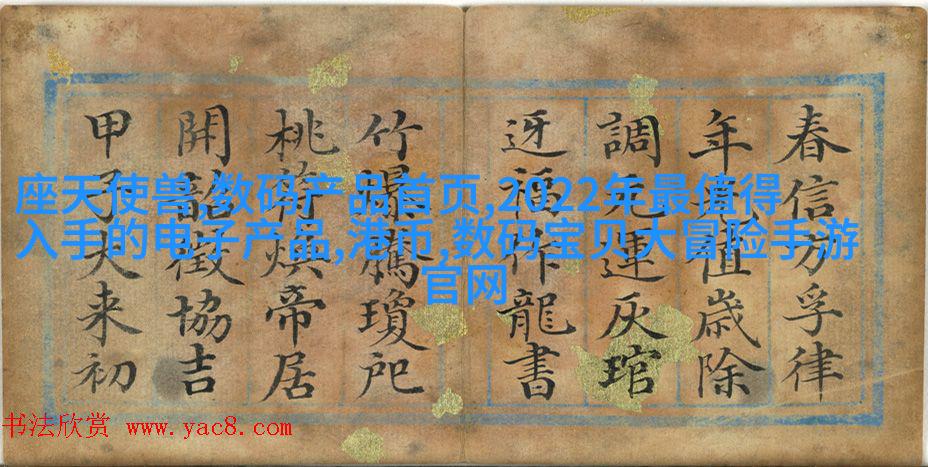 春信方孚律
年值歲除
調元運灰琯
迓福作龍書
竹爆瓊戺
桃符煥帝居
開韶徵協吉
甲子来初
座天使兽,数码产品首页,2022年最值得
入手的电子产品,港币,数码宝贝大冒险手游
官网
书法欣赏 www.yac8.com